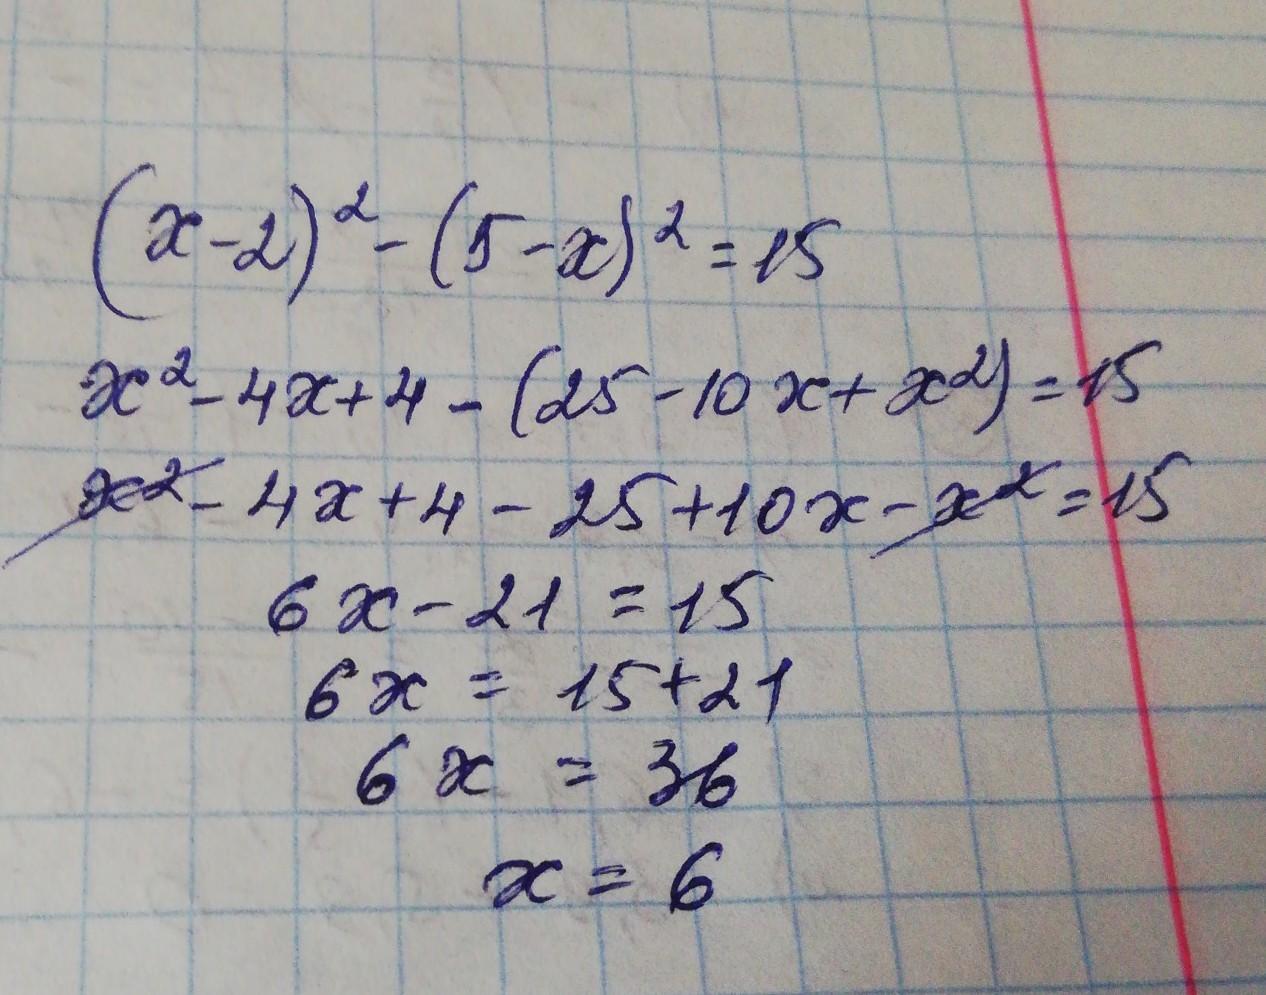 (x-2)² - (5-x)² = 15
x² - 4x + 4 - (25 - 10x + x²) = 15
x² - 4x + 4 - 25 + 10x - x² = 15
6x - 21 = 15
6x = 15 + 21
6x = 36
x = 6